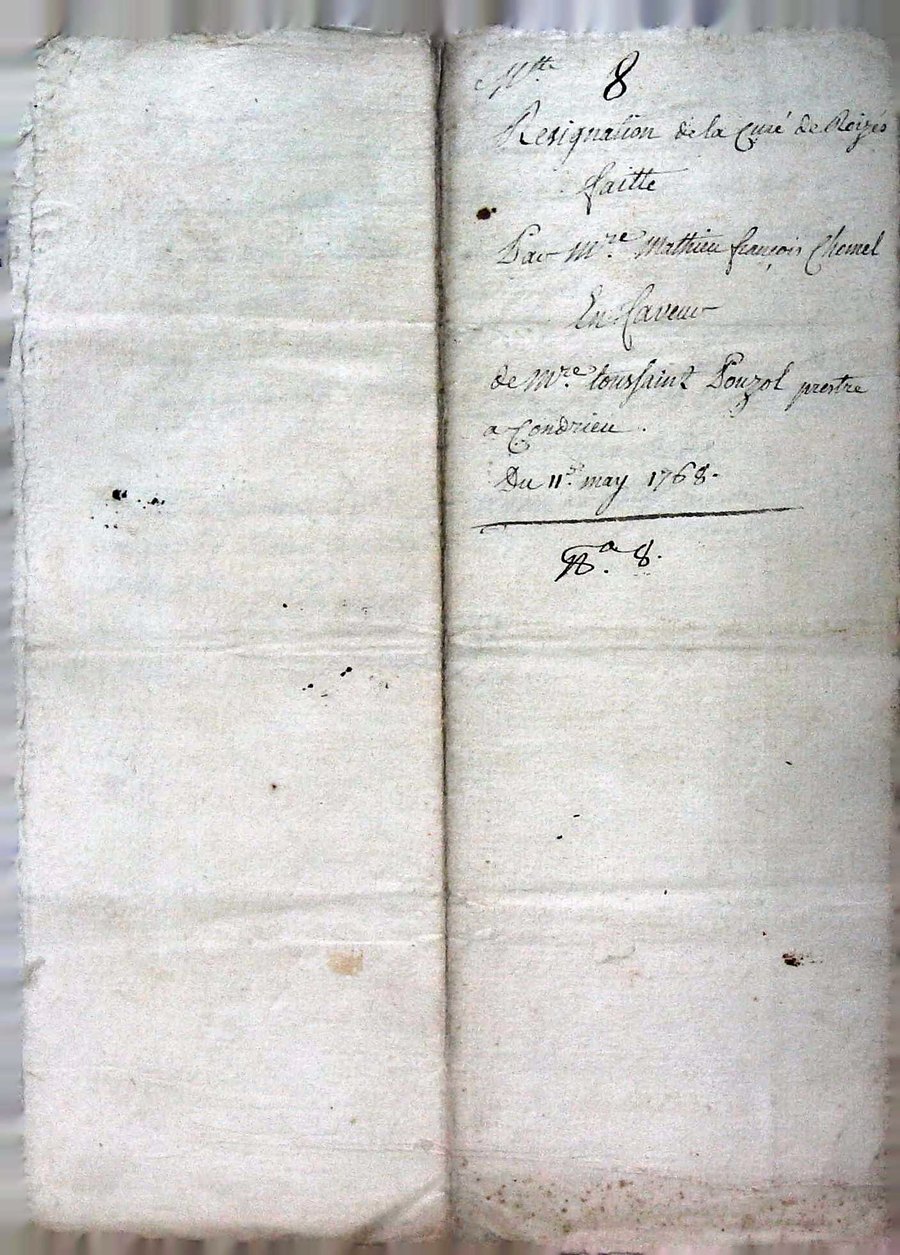 8
Resignation de la Curé de Roizés
faitte
Par Mre. Mathieu françois Chemel
En faveur
de Mre. toussaint Pouzol prestre
a Condrieu.
Du 11e. may 1768.
8.